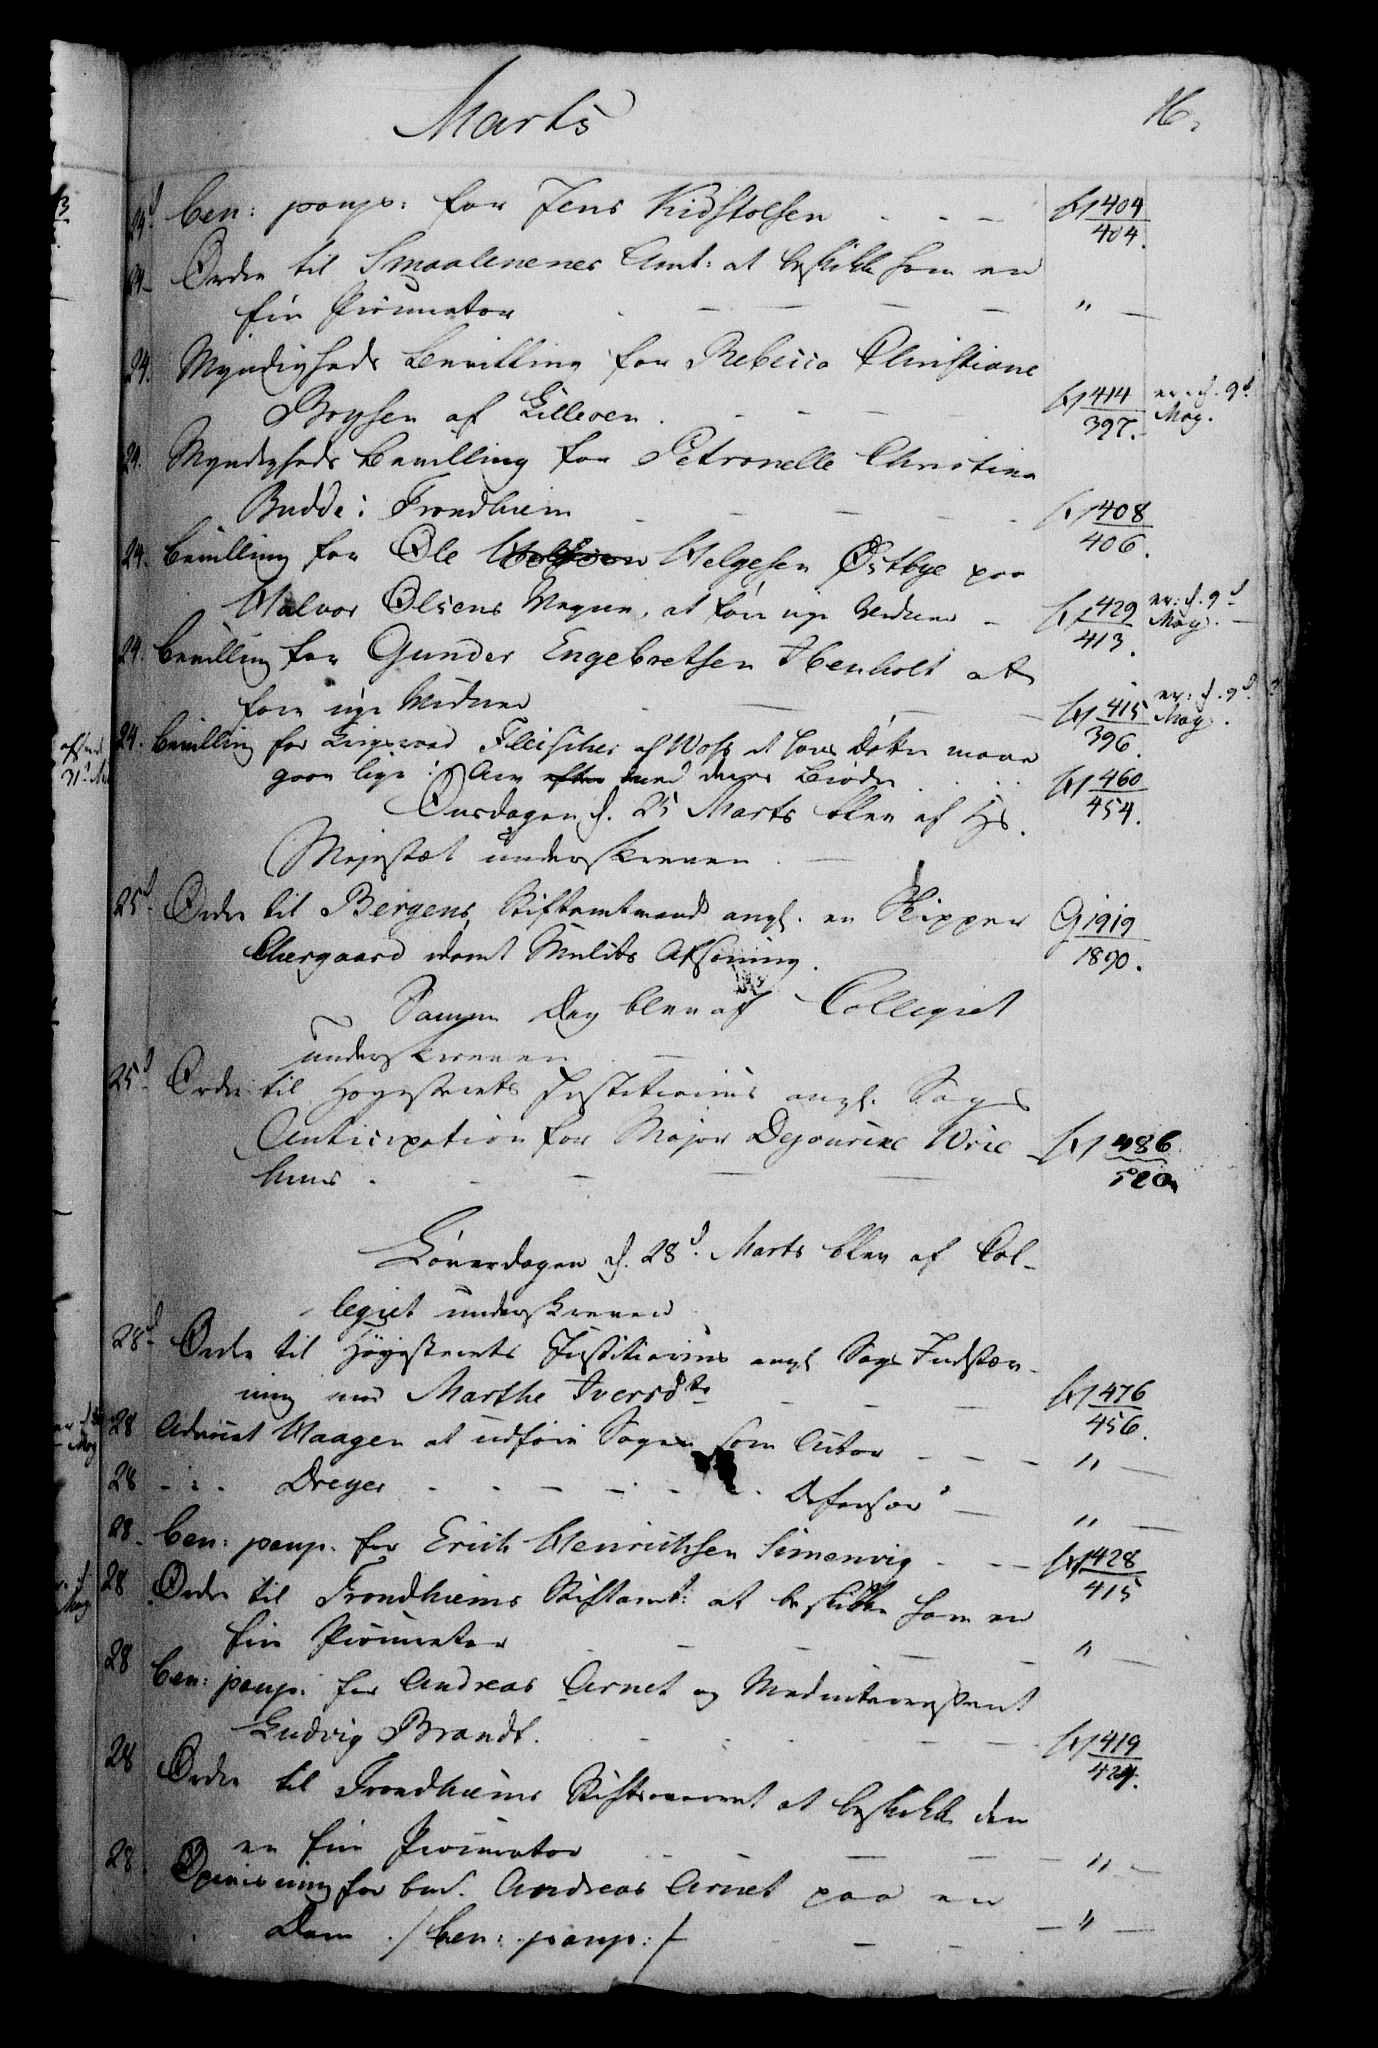 Marts
16.
24d ben: paup: for Jens Kidstolsen - - - 404/404.
24- Ordre til Smaalenenes Amt: at beskikke ham en
fri Procurator . — — — — "
24. Myndigheds bevilling for Rebecca Christiane
Boysen af Lilleoen. - - - 414/397. d. 9d May.
24. Myndigheds bevilling for Petronelle Christina
Budde i Trondhiem - - - - 408/406.
24. bevilling for Ole Helgesen Østbye paa
Halvor Olsens Vegne, at føre nye Vidner - 429/413. d. 9d May.
24. bevilling for Gunder Engebretsen Ibenholt at
føre nye Vidner - — — — 415/396. d. 9d May.
24. bevilling for Fleischer af Woss at hans Døttre maae
gaae lige i Arv efter med deres Brødre . . . 460/454.
Onsdagen d. 25 Marts blev af Hs.
Majestæt underskreven . —
25d. Ordre til Bergens Stiftamtmand angl. en Skipper
Aaergaard idømt Mulcts Afsoning. G 1919/1890.
Samme Dag blev af Collegiet
underskreven . —
25d- Ordre til Høyesterets Justitiarius angl. Sags
Anticipation for Major Dejourine Wric 486/520
huus . - — — —
Løverdagen d. 28d. Marts blev af Col-
legiet underskreven
28d- Ordre til Høyesterets Justitiarius angl Sags Indstæv-
ning mod Marthe Iversdtr - - - 476/456.
28 Advocat Haagen at udføre Sagen som Actor - - - " —
28 - : . Dreyer . - - - . - . Defensor — " —
28- ben: paup. for Erich Henrichsen Simenvig - - - 428/415
28 Ordre til Trondhiems Stiftamt: at beskikke ham en
fri Procurator — — — — — "
28 ben: paup: for Andreas Arnet og Medinteressent
Ludvig Brandt. . - . - — - 419/424.
28 Ordre til Trondhiems at beskikke dem
en fri Procurator — — — — " —
28. Opreisning for bem. Andreas Arnet paa en
Dom ./ ben: paup: /. — — — " —